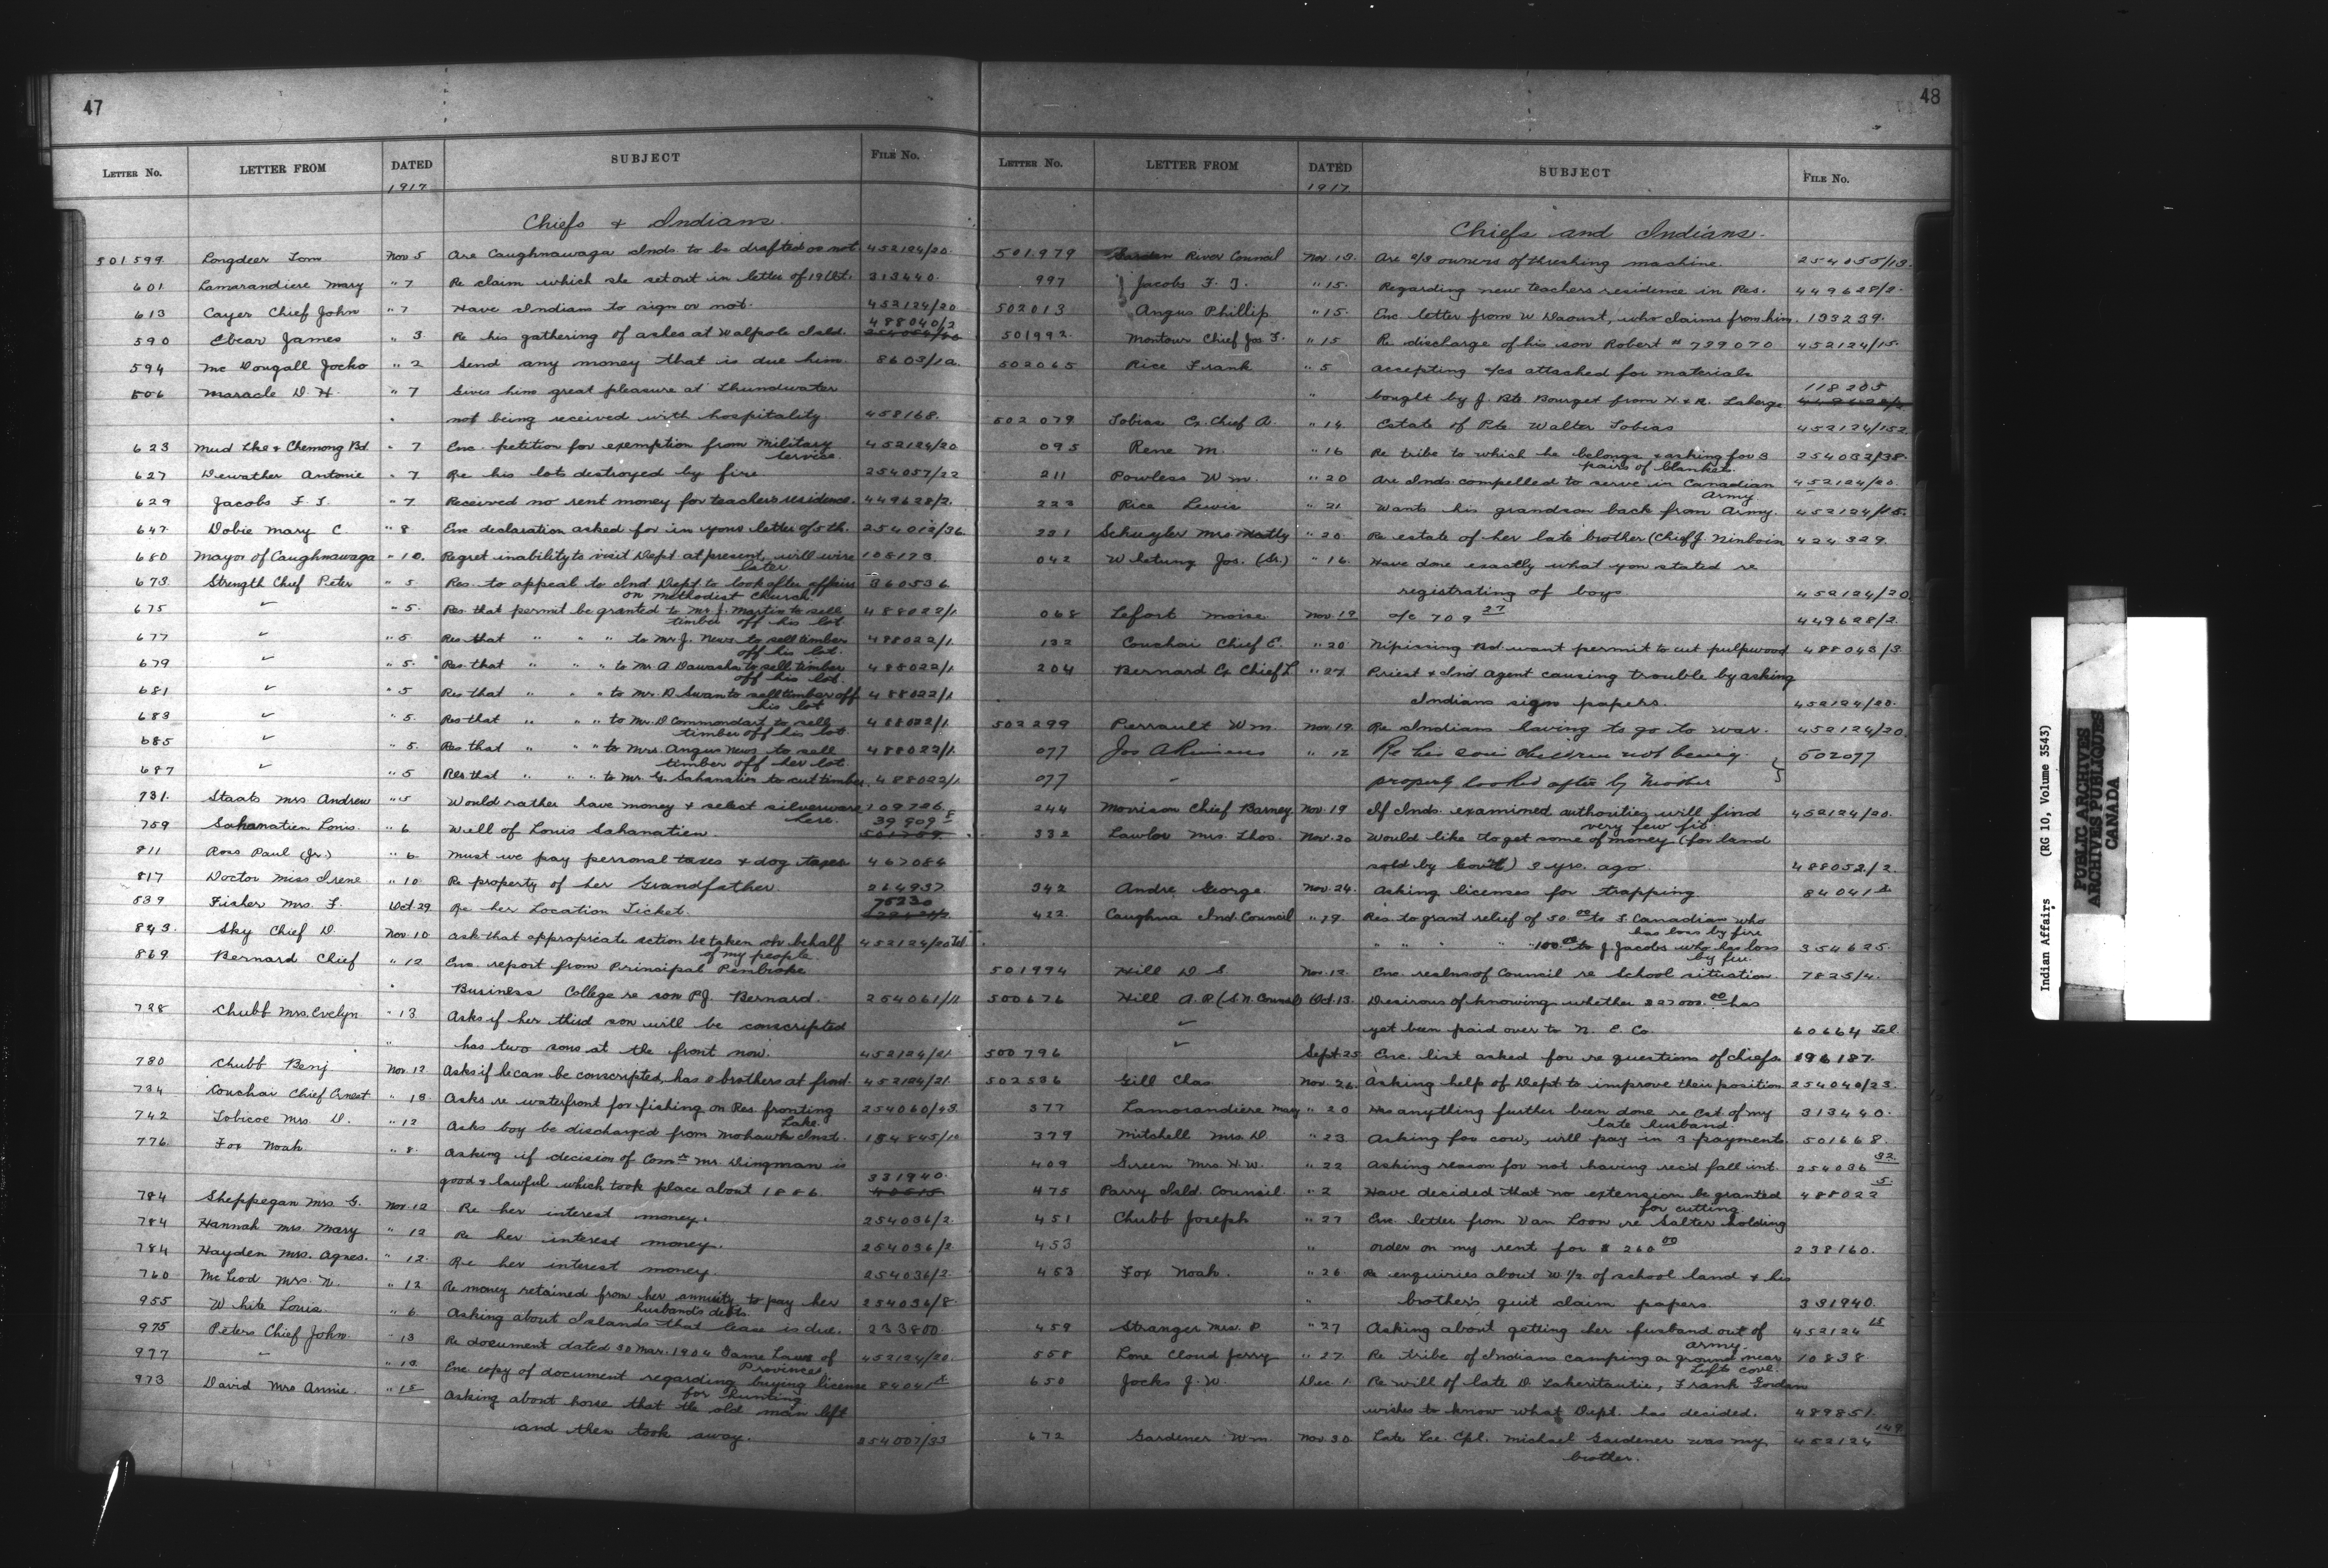 47
LETTER NO. LETTER FROM DATED SUBJECT FILE NO.
1917
Chiefs & Indians
501599 Longdeer Tom Nov 5 Are Caughnawaga Inds to be drafted or not 452124/20
601 Lamarandiere Mary " 7 Re claim which she set out in letter of 19 Ult. 313440
613 Cayer Chief John " 7 Have Indians to sign or not. 452124/20
488040/2
590 Ebear James " 3 Re his gathering of ashes at Walpole Isld.
594 Mc Dougall Jocko " 2 Send any money that is due him 8603/1a.
606 Maracle D. H. " 7 Gives him great pleasure at Thundwater
not being received with hospitality 458168.
623 Mud Lke & Chemong Bd " 7 Enc. petition for exemption from Military 452124/20
Service.
627 Dewather Antonie " 7 Re his lots destroyed by fire 254057/22
629 Jacobs F. J. " 7 Received no rent money for teachers residence. 449628/2.
647 Dobie Mary C. " 8 Enc declaration asked for in your letter of 5th. 254012/36
680 Mayor of Caughnawaga " 10. Regret inability to visit Dept. at present, will wire 108123
later
673 Strength Chief Peter " 5 Res. to appeal to Ind Dept. to look after affairs 360536
on Methodist Church
675 " " 5. Res. that permit be granted to Mr. J. Martin to sell 488022/1
timber off his lot
677 " " 5 Res that " " " to Mr J. News to sell timber 488022/1
off his lot.
679 " " 5. Res. that " " " to Mr. A Dawasha to sell timber 488022/1
off his lot.
681 " " 5 Res that " " " to Mr. D Swan to sell timber off 488022/1
his lot
683 " " 5. Res that " " " to Mr. D Commondant to sell 488022/1.
timber off his lot
685 " " 5. Res. that " " " to Mrs. Angus News to sell 488022/1.
timber off her lot
687 " " 5 Res that " " " to Mr. G. Sahanatien to cut timber 488022/1
731. Staats Mrs Andrew " 5 Would rather have money & select silverware 109726
here.
759 Sahanatien Louis " 6 Will of Louis Sahanatien 39909
811 Ross Paul (Jr.) " 6 Must we pay personal taxes & dog taxes 467084
817 Doctor Miss Irene " 10 Re property of her Grandfather. 264937
75230
839 Fisher Mrs. F. Oct 29 Re her Location Ticket.
843. Sky Chief D. Nov. 10 Ask that appropriate action be taken on behalf 452124/20 Tel
of my people
869 Bernard Chief " 12 Enc. report from Principal Pembroke
Business College re son P.J. Bernard. 254061/11
728 Chubb Mrs. Evelyn " 13 Asks if her third son will be conscripted
has two sons at the front now. 452124/21
730 Chubb Benj Nov. 12 Asks if he can be conscripted, has 2 brothers at front 452124/21.
734 Conchai Chief Ernest " 13 Asks re waterfront for fishing on Res. fronting 254060/43.
Lake.
742 Tobicoe Mrs. D. " 12 Asks boy be discharged from Mohawk Inst. 154845/1a
776 Fox Noah " 8. Asking if decision of Comr Mr. Dingman is
good & lawful which took place about 1886. 331940.
784 Sheppegan Mrs. G. Nov. 12 Re her interest money. 254036/2.
784 Hannah Mrs. Mary " 12 Re her interest money. 254036/2
784 Hayden Mrs. Agnes. " 12. Re her interest money. 254036/2.
760 McLeod Mrs. N. " 12 Re money retained from her annuity to pay her 254036/8.
husband's debts.
955 White Louis " 6 Asking about Islands that lease is due. 233800.
975 Peters Chief John " 13 Re document dated 30 Mar. 1904 Game Laws of 452124/20.
Provinces
977 " " 13 Enc copy of document regarding buying license 84041
for hunting
973 David Mrs Annie. " 15 Asking about horse that the old man left
and then took away. 254007/33
48
LETTER NO. LETTER FROM DATED SUBJECT FILE NO.
1917.
Chiefs and Indians.
501979 Garden River Council Nov 13. Are 2/3 owners of threshing machine. 254055/13.
997 Jacobs F. J. " 15. Regarding new teachers residence in Res. 449628/2.
502013 Angus Phillip " 15. Enc letter from W Daoust, who claims from him. 193239.
501992 Montour Chief Jos. F. " 15 Re discharge of his son Robert # 739070 452124/15.
502065 Rice Frank " 5 accepting a/cs attached for materials
118205
" bought by J. Bte Bourget from H & R. Laberge
502079 Tobias Ex Chief A. " 14 Estate of Pte Walter Tobias 452124/152
095 Rene M. " 16 Re tribe to which he belongs & asking for 3 254032/38.
pairs of blankets.
211 Powless Wm. " 20 Are Inds. compelled to serve in Canadian 452124/20.
Army
223 Rice Lewis " 21 Wants his grandson back from Army. 452124/15.
231 Schuyler Mrs. Hatty " 20 Re estate of her late brother (Chief J. Ninboin 424329.
042 Whetung Jos. (Sr.) " 16 Have done exactly what you stated re
registrating of boys 452124/20.
068 Lefort Moise Nov. 12 a/c 709 27 449628/2.
132 Conchai Chief E. " 20 Nipissing Bd want permit to cut pulpwood 488043/3
204 Bernard Ex Chief L " 27 Priest & Ind Agent causing trouble by asking
Indians sign papers. 452124/20.
502299 Perrault Wm. Nov. 19. Re Indians having to go to war. 452124/20.
077 Jos " 12 Re his children not being 502077
077 " properly looked after by Mother
244 Morrison Chief Barney Nov. 19 If Inds. examined authorities will find 452124/20.
very few fit.
332 Lawlor Mrs. Thos. Nov. 20 Would like to get some of money (for land
sold by Gov't) 2 yrs. ago. 488052/2
342 Andre George. Nov. 24. Asking licenses for trapping 84041
422 Caughna Ind. Council " 19. Res. to grant relief of 50.00 to F. Canadian who
has loss by fire
" " " " 100.00 to J Jacobs who has loss 354625.
by fire.
501994 Hill D S. Nov. 12. Enc. realms of Council re School situation. 7825/4.
500676 Hill A. R (S.N. Council) Oct. 13. Desirous of knowing whether $27000.00 has
" yet been paid over to N. E. Co. 60664 Tel
500796 " Sept 25 Enc. list asked for re questions of chiefs 196187.
502536 Gill Clas. Nov. 26. Asking help of Dept to improve their position 254040/23.
377 Lamorandiere Mary " 20 Has anything further been done re Est. of my 313440.
late husband.
379 Mitchell Mrs. D " 23 Asking for cow, will pay in 3 payments. 501668.
409 Green Mrs. H.W. " 22 Asking reason for not having rec'd fall int. 254036 32
475 Parry Isld. Council " 2 Have decided that no extension be granted 488022 5
for cutting.
451 Chubb Joseph " 27 Enc letter from Van Loon re Salter holding
453 " order on my rent for $ 260 00 238160.
453 Fox Noah. " 26. Re enquiries about W 1/2 of school land & his
" brother's quit claim papers. 331940.
459 Stranger Mrs. P " 27 Asking about getting her husband out of 452124 15
army.
558 Lone Cloud Jerry " 27. Re tribe of Indians camping a ground near 10838
Tufts Cove.
650 Jocks J. W. Dec. 1. Re will of late D Lakeritautie, Frank Gordon
wishes to know what Dept. has decided. 489851.
672 Gardener Wm. Nov. 30. Late Lce. Cpl. Michael Gardener was my 452124 149
brother.
Indian Affairs (RG 10, Volume 3543)
PUBLIC ARCHIVES
ARCHIVES PUBLIQUES
CANADA